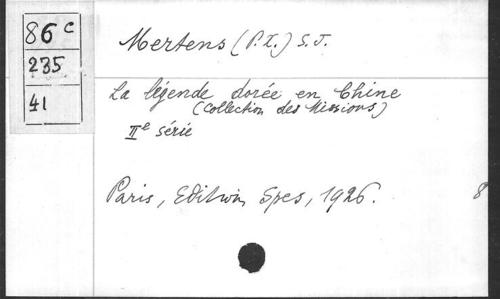 86 c
235
41
Mertens (P.X.) S.J.
La légende dorée en Chine
(Collection des Missions)
IIe série
Paris, Edition Spes, 1926.
8